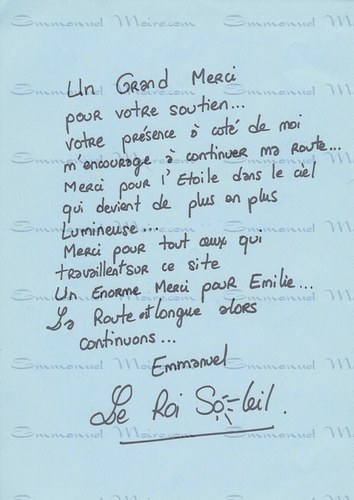 Emmanuel Moire.com
Un Grand Merci
pour votre soutien...
votre présence à coté de moi
m'encourage à continuer ma route...
Merci pour l'Etoile dans le ciel
qui devient de plus en plus
Lumineuse...
Merci pour tout ceux qui
travaillent sur ce site
Un Enorme Merci pour Emilie...
La Route est longue alors
continuons...
Emmanuel
Le Roi Soleil.